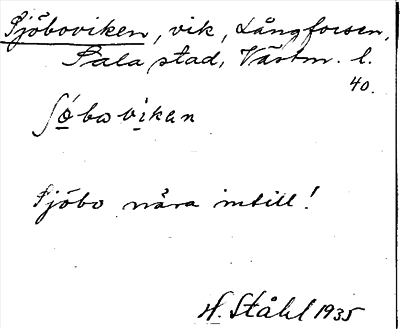 Sjöboviken, vik, Långforsen,
Sala stad, Västm. l.
40.
ʃö́bavikan
Sjöbo nära intill!
H. Ståhl 1935